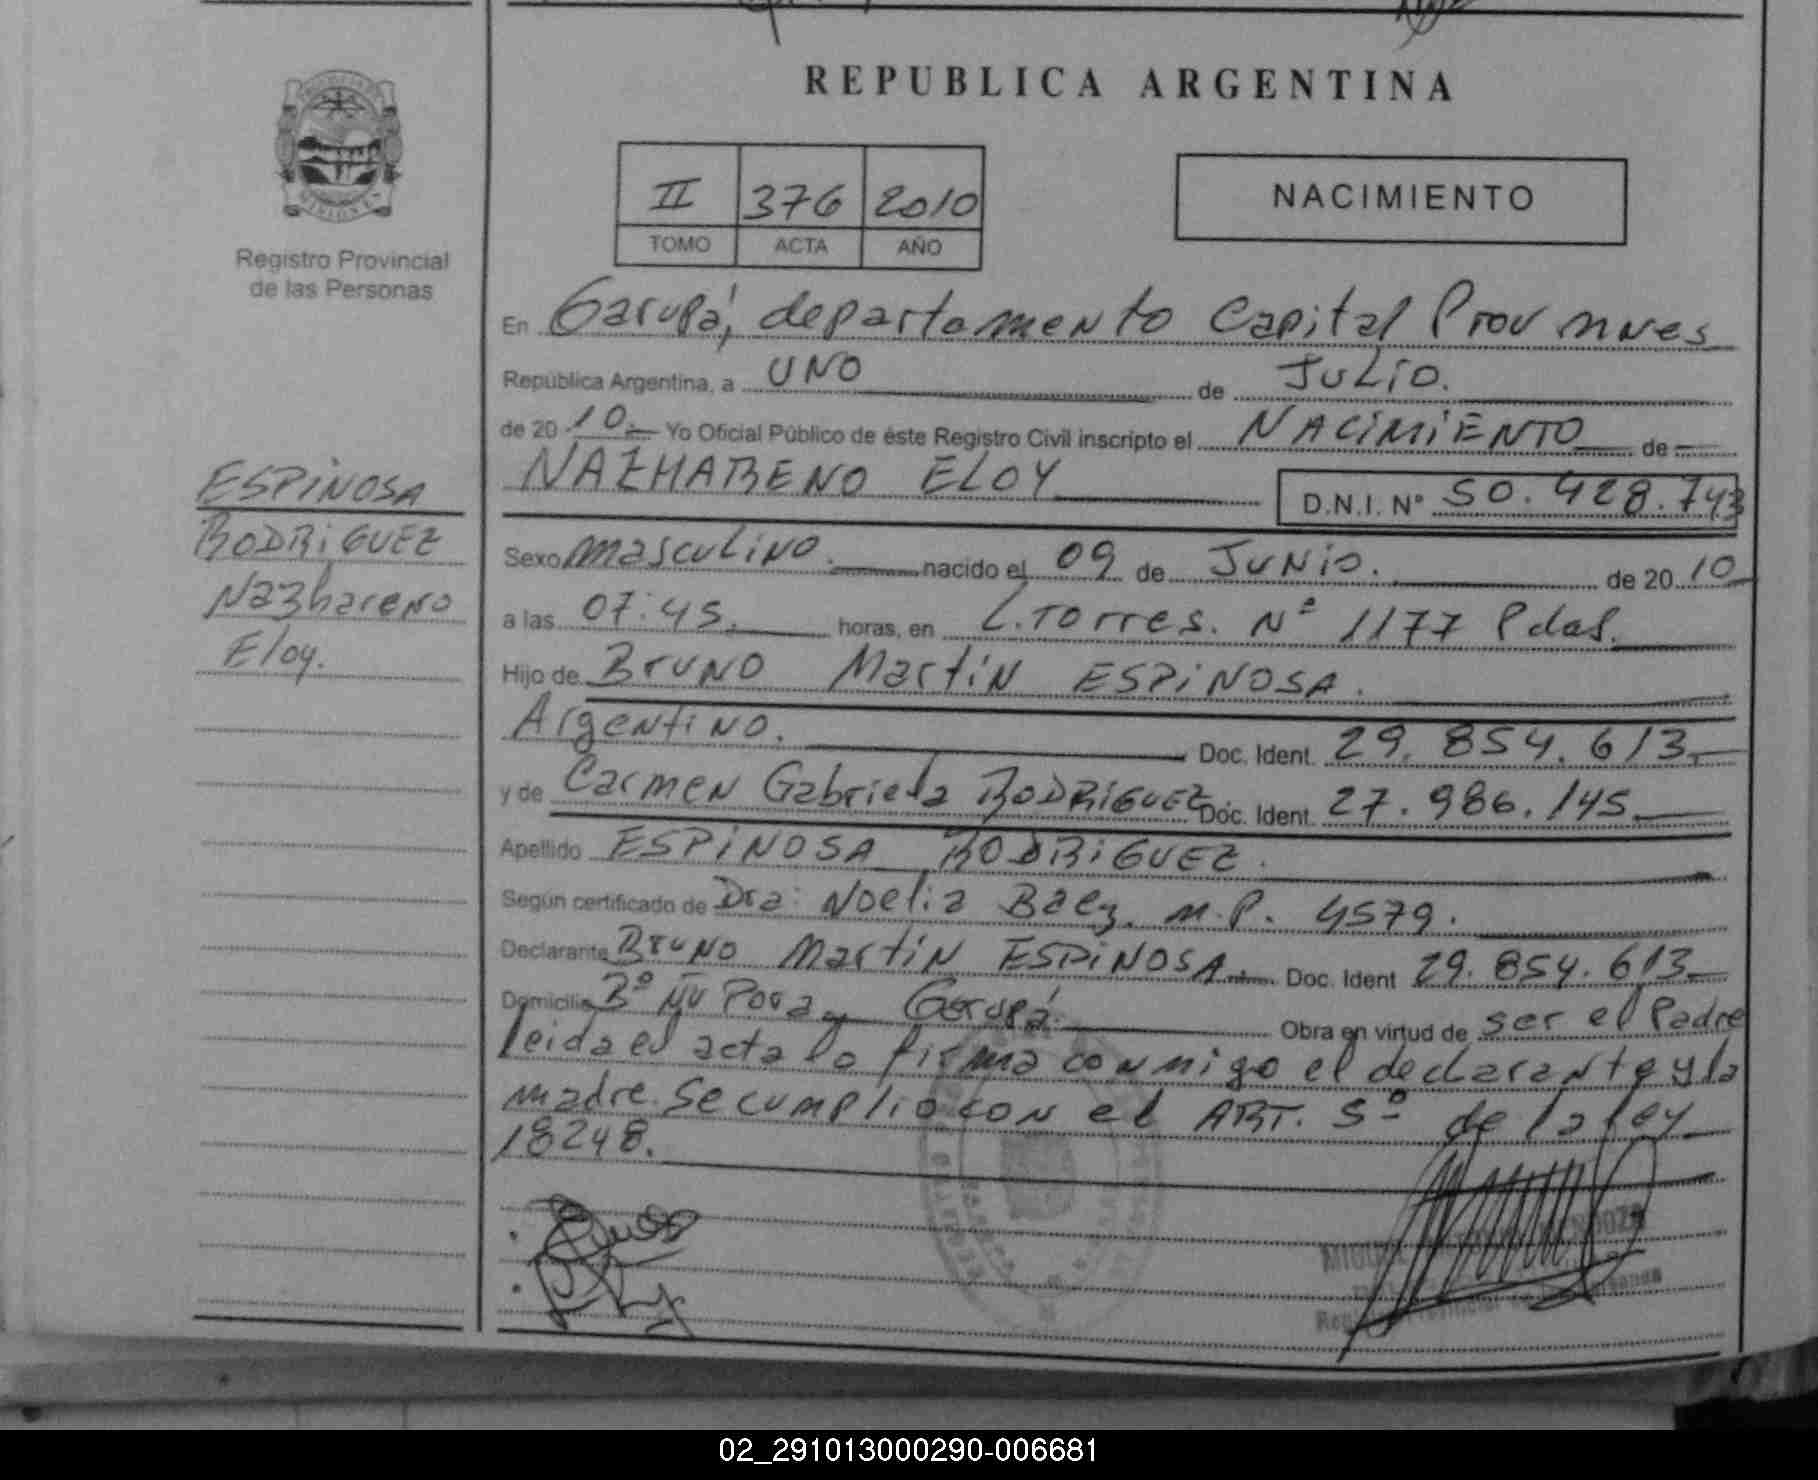 REPUBLICA ARGENTINA
MISIONES
Registro Provincial
de las Personas
II 376 2010
TOMO ACTA AÑO
NACIMIENTO
En Garupá, departamento Capital Prov mnes
República Argentina, a UNO de JULIO.
de 20 10.- Yo Oficial Público de éste Registro Civil inscripto el NACIMIENTO de
NAZHARENO ELOY D.N.I. Nº 50.428.743
ESPINOSA
RODRIGUEZ
Nazhareno
Eloy.
Sexo masculino. nacido el 09 de JUNIO. de 20 10
a las 07:45. horas, en L. Torres. Nº 1177 Pdas.
Hijo de BRUNO Martin ESPINOSA.
Argentino. Doc. Ident. 29.854.613.
y de Carmen Gabriela RODRIGUEZ. Doc. Ident. 27.986.145
Apellido ESPINOSA RODRIGUEZ.
Según certificado de Dra: Noelia Baez. M.P. 4579.
Declarante BRUNO Martin ESPINOSA. Doc. Ident 29.854.613
Domicilio Bº Ñu Pora Garupá. Obra en virtud de ser el Padre
leida el acta la firma conmigo el declarante y la
madre. Se cumplio con el ART. 5º de la ley
18248.
02_291013000290-006681